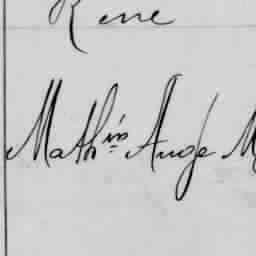 Rene
Mathin Ange M